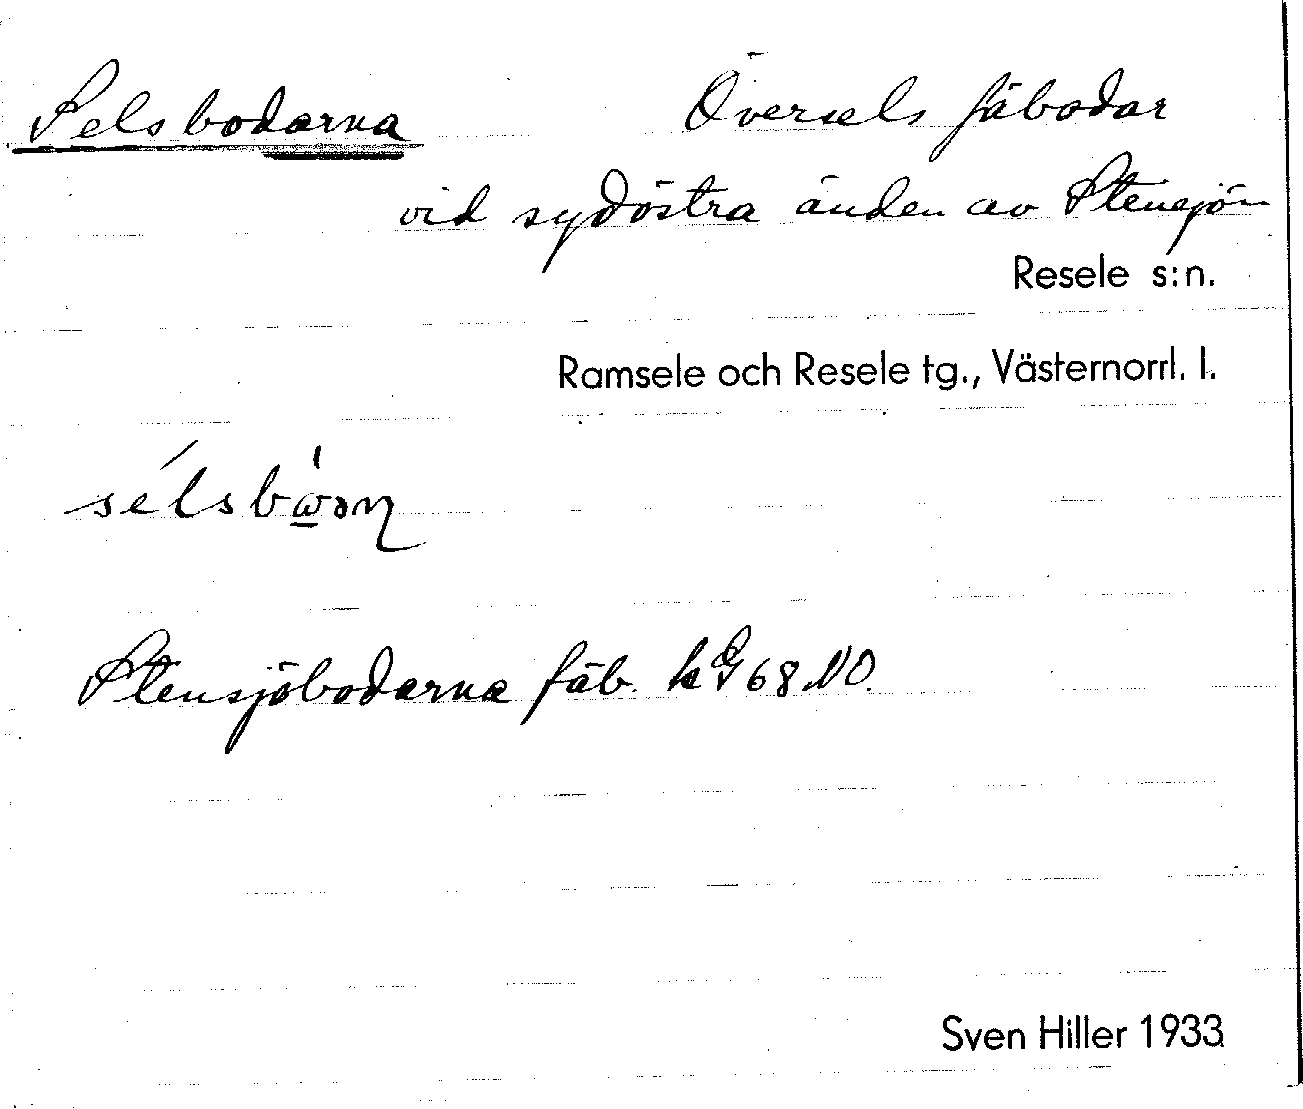 Selsbodarna Översels fäbodar
vid sydöstra änden av Stensjön
Resele s:n.
Ramsele och Resele tg., Västernorrl. l.
Stensjöbodarna fäb. k G 68 NO.
Sven Hiller 1933